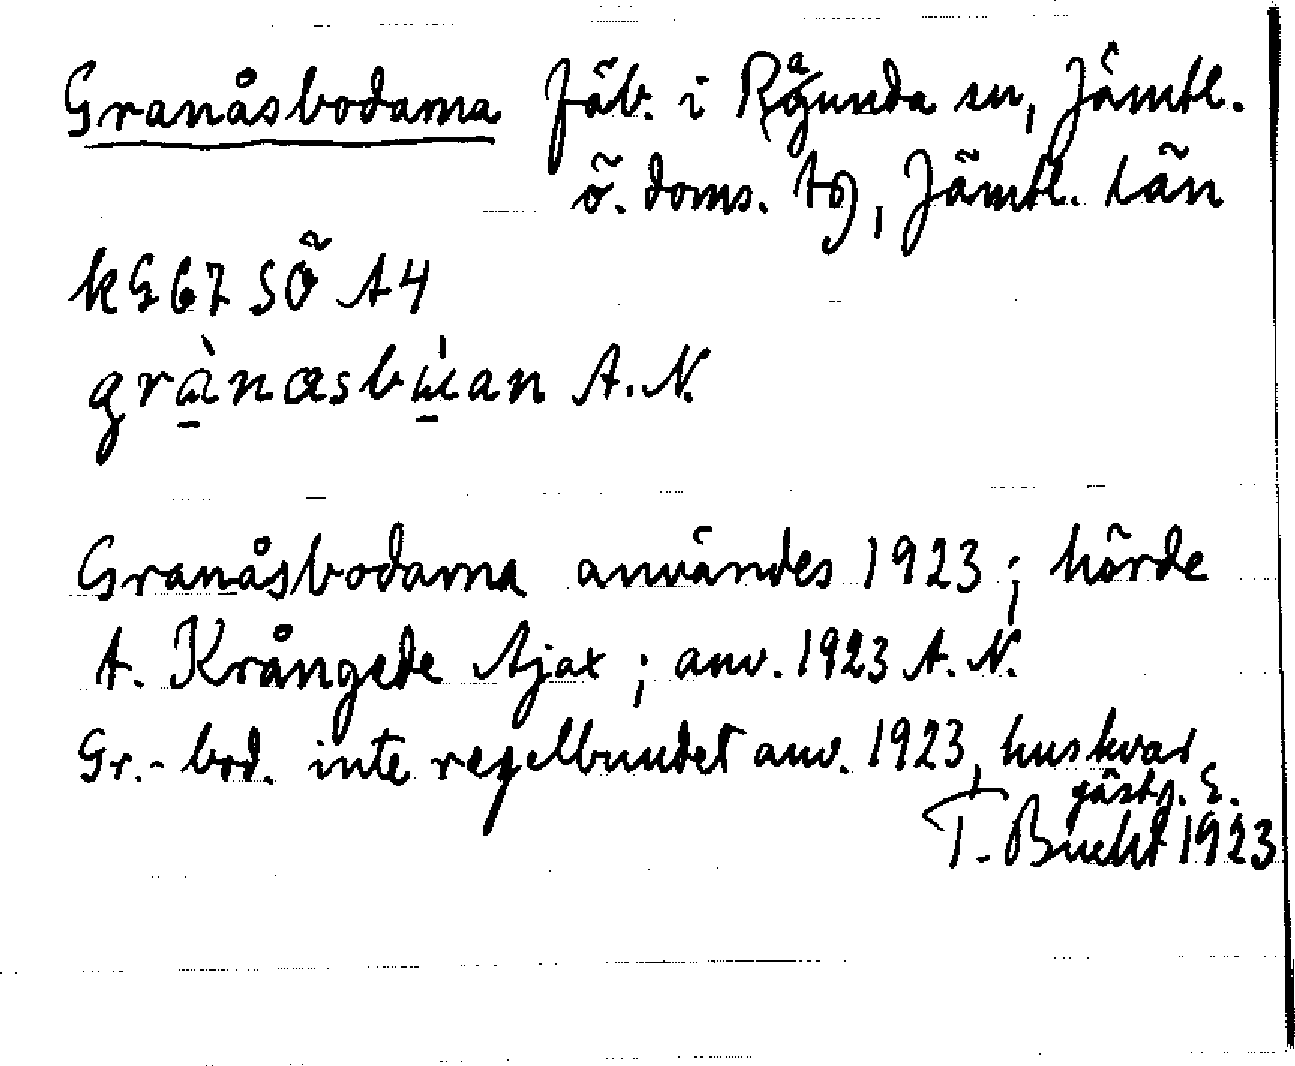 Granåsbodarna fäb. i Ragunda sn, Jämtl.
ö. doms. tg, Jämtl. län
kG67 SÖ A4
grànasbu̇an A.N.
Granåsbodarna användes 1923; hörde
t. Krångede Ajax; anv. 1923 A.N.
Gr.-bod. inte regelbundet anv. 1923, huskvar
gästg. E.
T. Bucht 1923